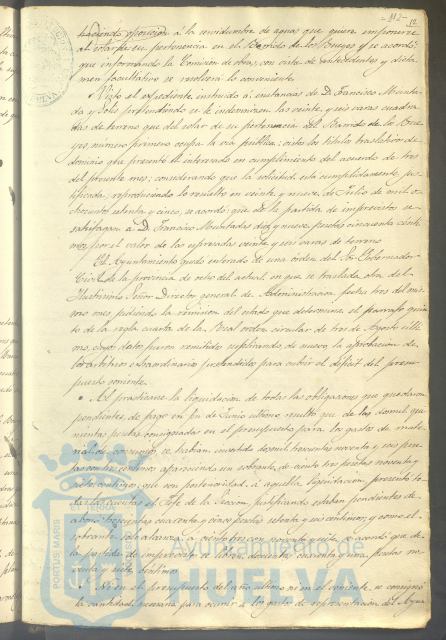 112 12
haciendo oposición á la servidumbre de aguas que quiera imponerse
al solar de su pertenencia en el Barrido de los Bueyes y se acordó:
que informando la Comision de obras, con vista de antecedentes y dicta-
men facultativo se resolverá lo conveniente.
Visto el expediente instruido á instancias de D. Francisco Munta-
da y Solis pretendiendo se le indemnicen las veinte y seis varas cuadra-
das de terreno que del solar de su pertenencia del Barrido de los Bue-
yes, número primero ocupa la via pública: vistos los títulos traslativos de
dominio que presenta el interesado en cumplimiento del acuerdo de tres
del presente mes: considerando que la solicitud está cumplidamente jus-
tificada; reproduciendo lo resuelto en veinte y nueve de Julio de mil o-
chocientos setenta y cinco, se acordó; que de la partida de imprevistos se
satisfagan á D. Francisco Muntadas diez y nueve pesetas cincuenta cénti-
mos por el valor de las expresadas veinte y seis varas de terreno.
El Ayuntamiento quedó enterado de una órden del Sr. Gobernador
Civil de la provincia de ocho del actual, en que se traslada otra del
Ilustrísimo Señor Director general de Administracion fecha tres del mis-
mo mes pidiendo la remision del estado que determina el párrafo quin-
to de la regla cuarta de la Real órden circular de tres de Agosto últi-
mo, cuyos datos fueron remitidos solicitando de nuevo la aprobacion de
los arbitrios extraordinarios para cubrir el déficit del presu-
puesto corriente.
Al practicarse la liquidacion de todas las obligaciones que quedaron
pendientes de pago en fin de Junio último, resultó que de las dos mil qui-
nientas pesetas consignadas en el presupuesto para los gastos de mate-
rial se habian invertido dos mil trescientas noventa y seis pese-
tas con tres céntimos apareciendo un sobrante de ciento tres pesetas noventa y
siete céntimos; que con posterioridad á aquella liquidacion presentó to-
das las cuentas el Jefe de la Seccion, justificando estaban pendientes de
abono trescientas cuarenta y cinco pesetas setenta y seis céntimos; y como el
sobrante solo alcanza á cubrir con noventa y siete, se acordó que de
la partida de imprevistos se libren doscientas cuarenta y una pesetas se-
tenta y nueve céntimos.
Ni en el presupuesto del año último ni en el corriente, se consignó
la cantidad necesaria para ocurrir á los gastos de representacion del Ayun-
PORTUS MARIS
Ayuntamiento de
HUELVA